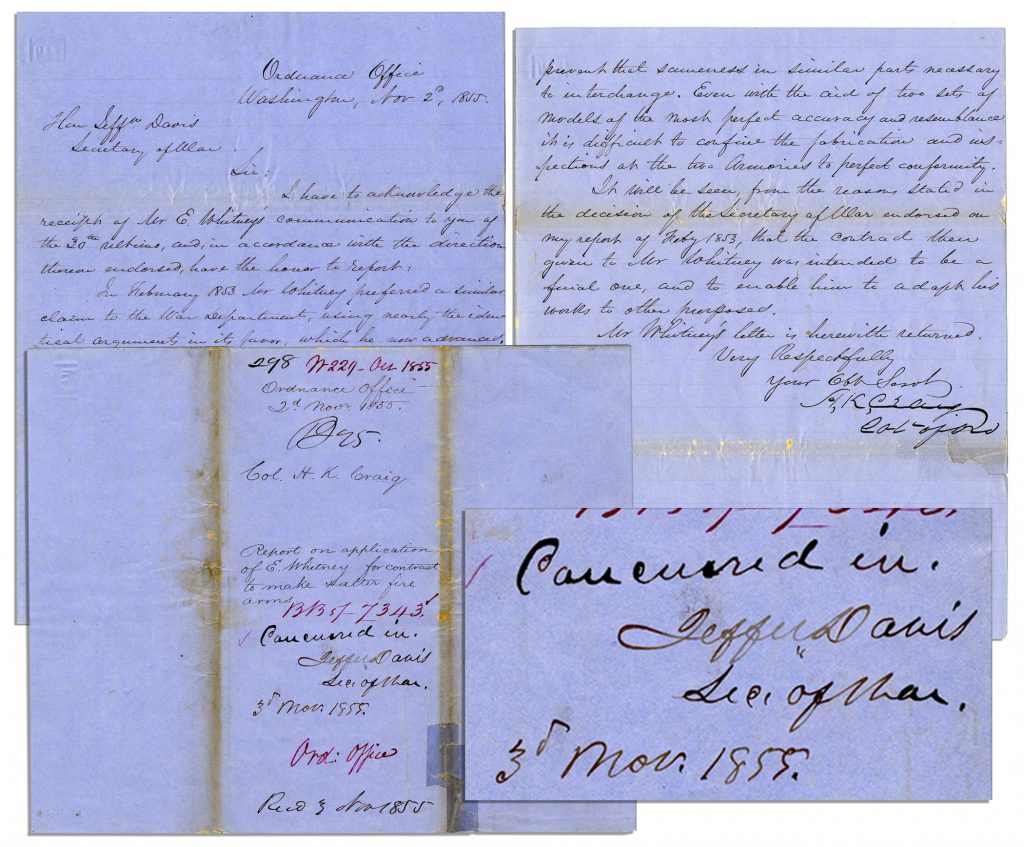 Ordnance Office
Washington, Nov 2d, 1855.
Hon Jeffn Davis
Secretary of War.
Sir:
I have to acknowledge the
receipt of Mr E. Whitney's communication to you of
the 30th ultimo, and, in accordance with the direction
thereon endorsed, have the honor to report:
In February 1853 Mr Whitney preferred a similar
claim to the War Department, using nearly the iden
tical arguments in its favor, which he now advances,
prevent that sameness in similar parts necessary
to interchange. Even with the aid of two sets of
models of the most perfect accuracy and resemblance
it is difficult to confine the fabrication and ins-
pections at the two Armories to perfect conformity.
It will be seen, from the reasons stated in
the decision of the Secretary of War endorsed on
my report of Feby 1853, that the contract then
given to Mr Whitney was intended to be a
final one, and to enable him to adapt his
works to other purposes.
Mr Whitney's letter is herewith returned.
Very Respectfully
Your Obt Servt.
H. K. Craig
Col of Ord
298 W229 - Oct 1855
Ordnance Office
2d Nov. 1855.
Col. H. K. Craig
Report on application
of E. Whitney for contract
to make & alter fire
arms
BB 7343
Concurred in.
Jeffer Davis
Sec. of War.
3d Nov. 1855.
Ord: Office
Recd 3 Nov 1855
Concurred in.
Jeffer Davis
Sec. of War.
3d Nov. 1855.